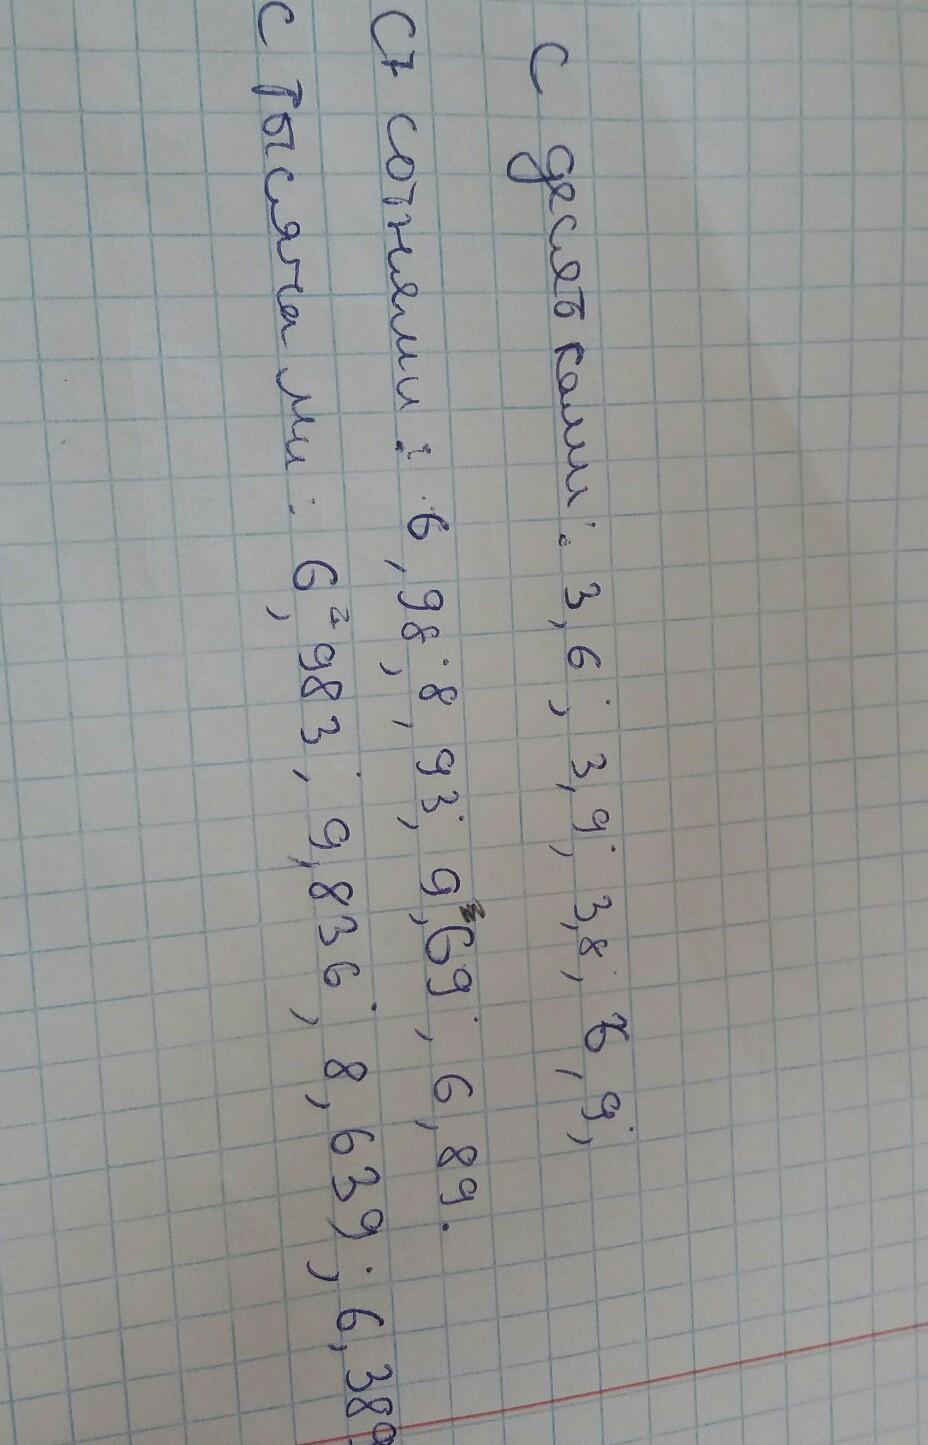 С десятками: 3,6; 3,9; 3,8; 6,9;
С сотнями: 6,98; 8,93; 9,69; 6,89.
С тысячами: 6,983; 9,836; 8,639; 6,389